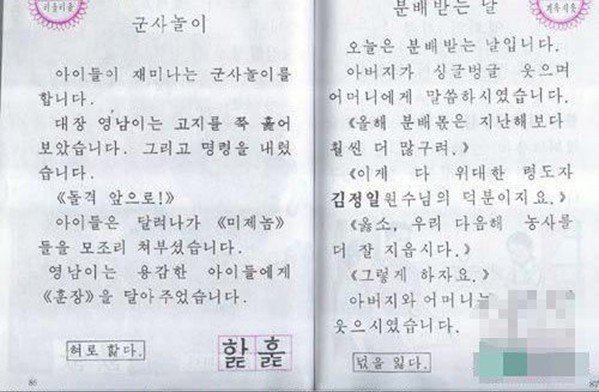 군사놀이
아이들이 재미나는 군사놀이를
합니다.
대장 영남이는 고지를 쭉 훑어
보았습니다. 그리고 명령을 내렸
습니다.
《돌격 앞으로!》
아이들은 달려나가 《미제놈》
들을 모조리 쳐부셨습니다.
영남이는 용감한 아이들에게
《훈장》을 달아주었습니다.
혀로 핥다.
핥 훑
86
분배받는 날
오늘은 분배받는 날입니다.
아버지가 싱글벙글 웃으며
어머니에게 말씀하시였습니다.
《올해 분배몫은 지난해보다
훨씬 더 많구려.》
《이게 다 위대한 령도자
김정일원수님의 덕분이지요.》
《옳소, 우리 다음해 농사를
더 잘 지읍시다.》
《그렇게 하자요.》
아버지와 어머니는
웃으시였습니다.
넋을 잃다.